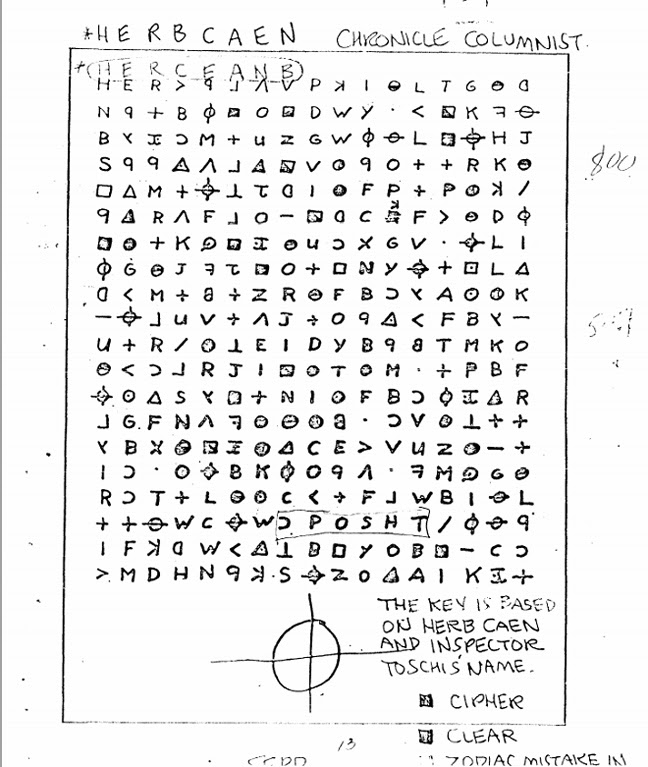 *HERB CAEN CHRONICLE COLUMNIST.
*(HERCEANB)
H E R > q ⅃ Λ V P ꓘ I ⊖ L T G ⊖ ᗡ
N 9 + B ϕ ◪ O ◪ D W Y · < ◪ K ꟻ ⊖
B Y I Ɔ M + U Z G W ϕ ⊖ L ◪ ⌖ H J
S 9 9 Δ Λ ⅃ Δ ◪ V O 9 O + + R K ⊖
□ Δ M + ⌖ ⊥ τ ᗡ I ● F P + P O ꓘ /
9 Δ R Λ F ⅃ O − ◪ ᗡ C F > ⊖ D ϕ
◪ ● + K ◪ I ⊖ U Ɔ X G V · ⌖ L I
ϕ G ⊖ J ꟻ τ ◪ O + □ N Y ⌖ + ◪ L Δ
ᗡ < M + 8 + Z R ⊖ F B Ɔ Y A ⊙ ⊙ K
− ⌖ ⅃ U V + Λ J + O 9 Δ < F B Y −
U + R / ⊙ ⊥ E I D Y B 9 8 T M K O
⊖ < Ɔ ⅃ R J I ◪ O T O M · + P B F
⌖ O Δ S Y ◪ + N I ● F B Ɔ ϕ I Δ R
⅃ G F N Λ ꟻ ⊖ ⊖ ⊖ 8 · Ɔ V ⊖ ⊥ + +
Y B X ● ◪ I ● Δ C E > V U Z ⊖ − +
I Ɔ · ⊙ ⌖ B K ϕ O 9 Λ · ꟻ M G ⊖
R Ɔ T + L ⊖ ⊖ C < + F ⅃ W B I ⊖ L
+ + ⊖ W C ⌖ W Ɔ P O S H T / ϕ ⊖ 9
I F ꓘ ᗡ W < Δ ⊥ B □ Y O B ◪ − C Ɔ
> M D H N 9 ꓘ S ⌖ Z O Δ A I K I +
THE KEY IS BASED
ON HERB CAEN
AND INSPECTOR
TOSCHIS NAME.
CIPHER
CLEAR
ZODIAC MISTAKE IN
800
13